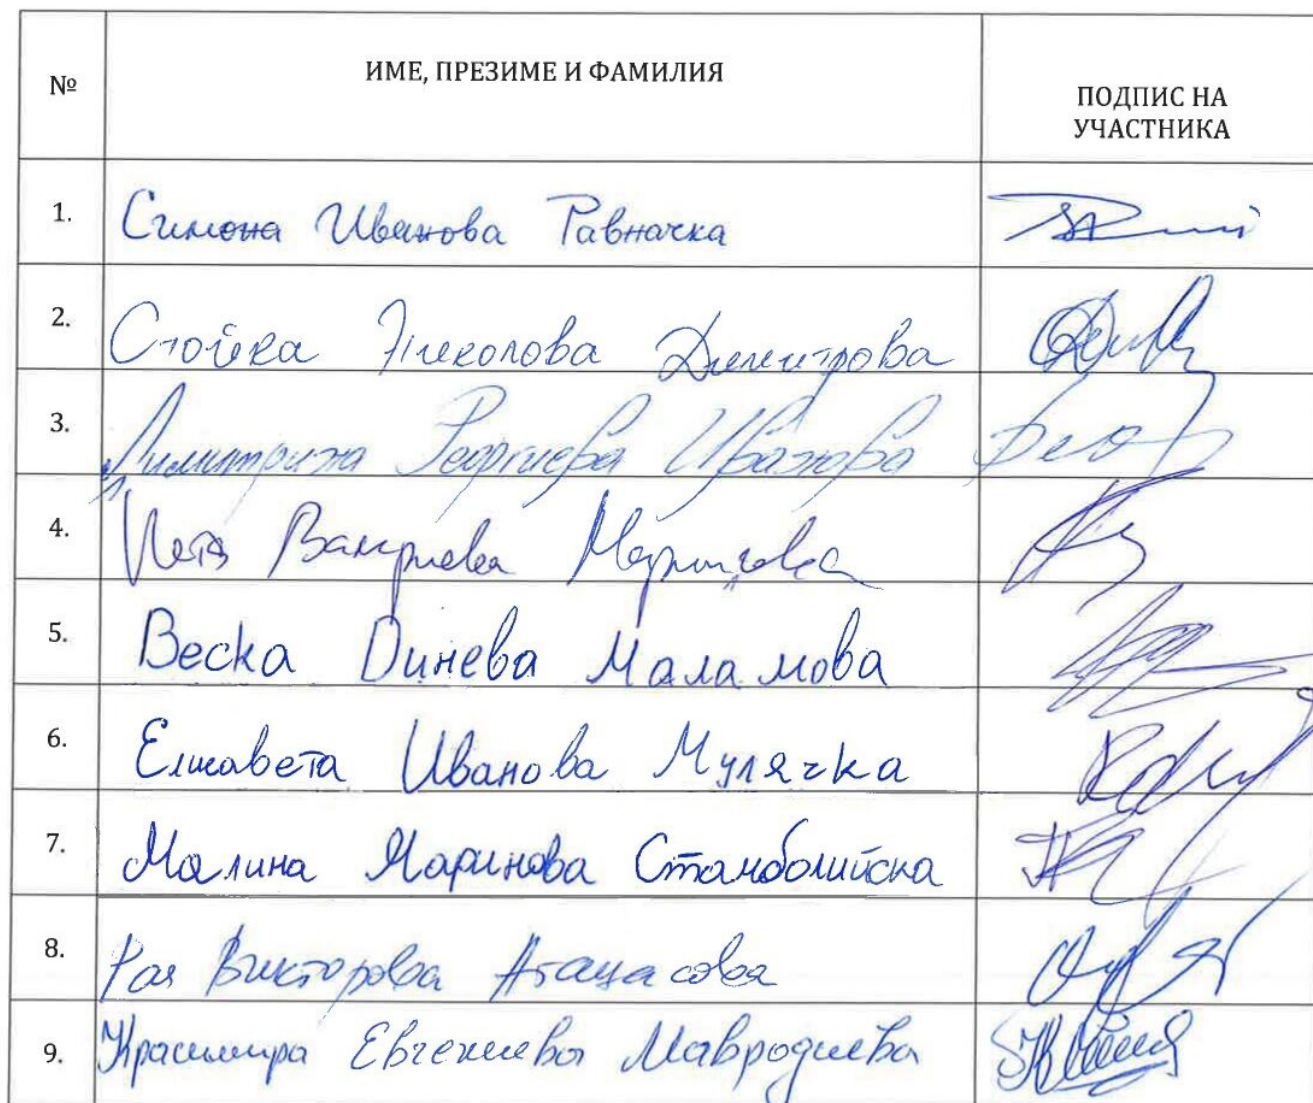 № ИМЕ, ПРЕЗИМЕ И ФАМИЛИЯ ПОДПИС НА
УЧАСТНИКА
1. Симона Иванова Равначка
2. Стойка Николова Димитрова
3. Димитрина Георгиева Иванова
4. Петя Валериева
5. Веска Динева Маламова
6. Елисавета Иванова Мулячка
7. Малина Маринова Стамболийска
8. Рая Викторова Атанасова
9. Красимира Евгениева Мавродиева